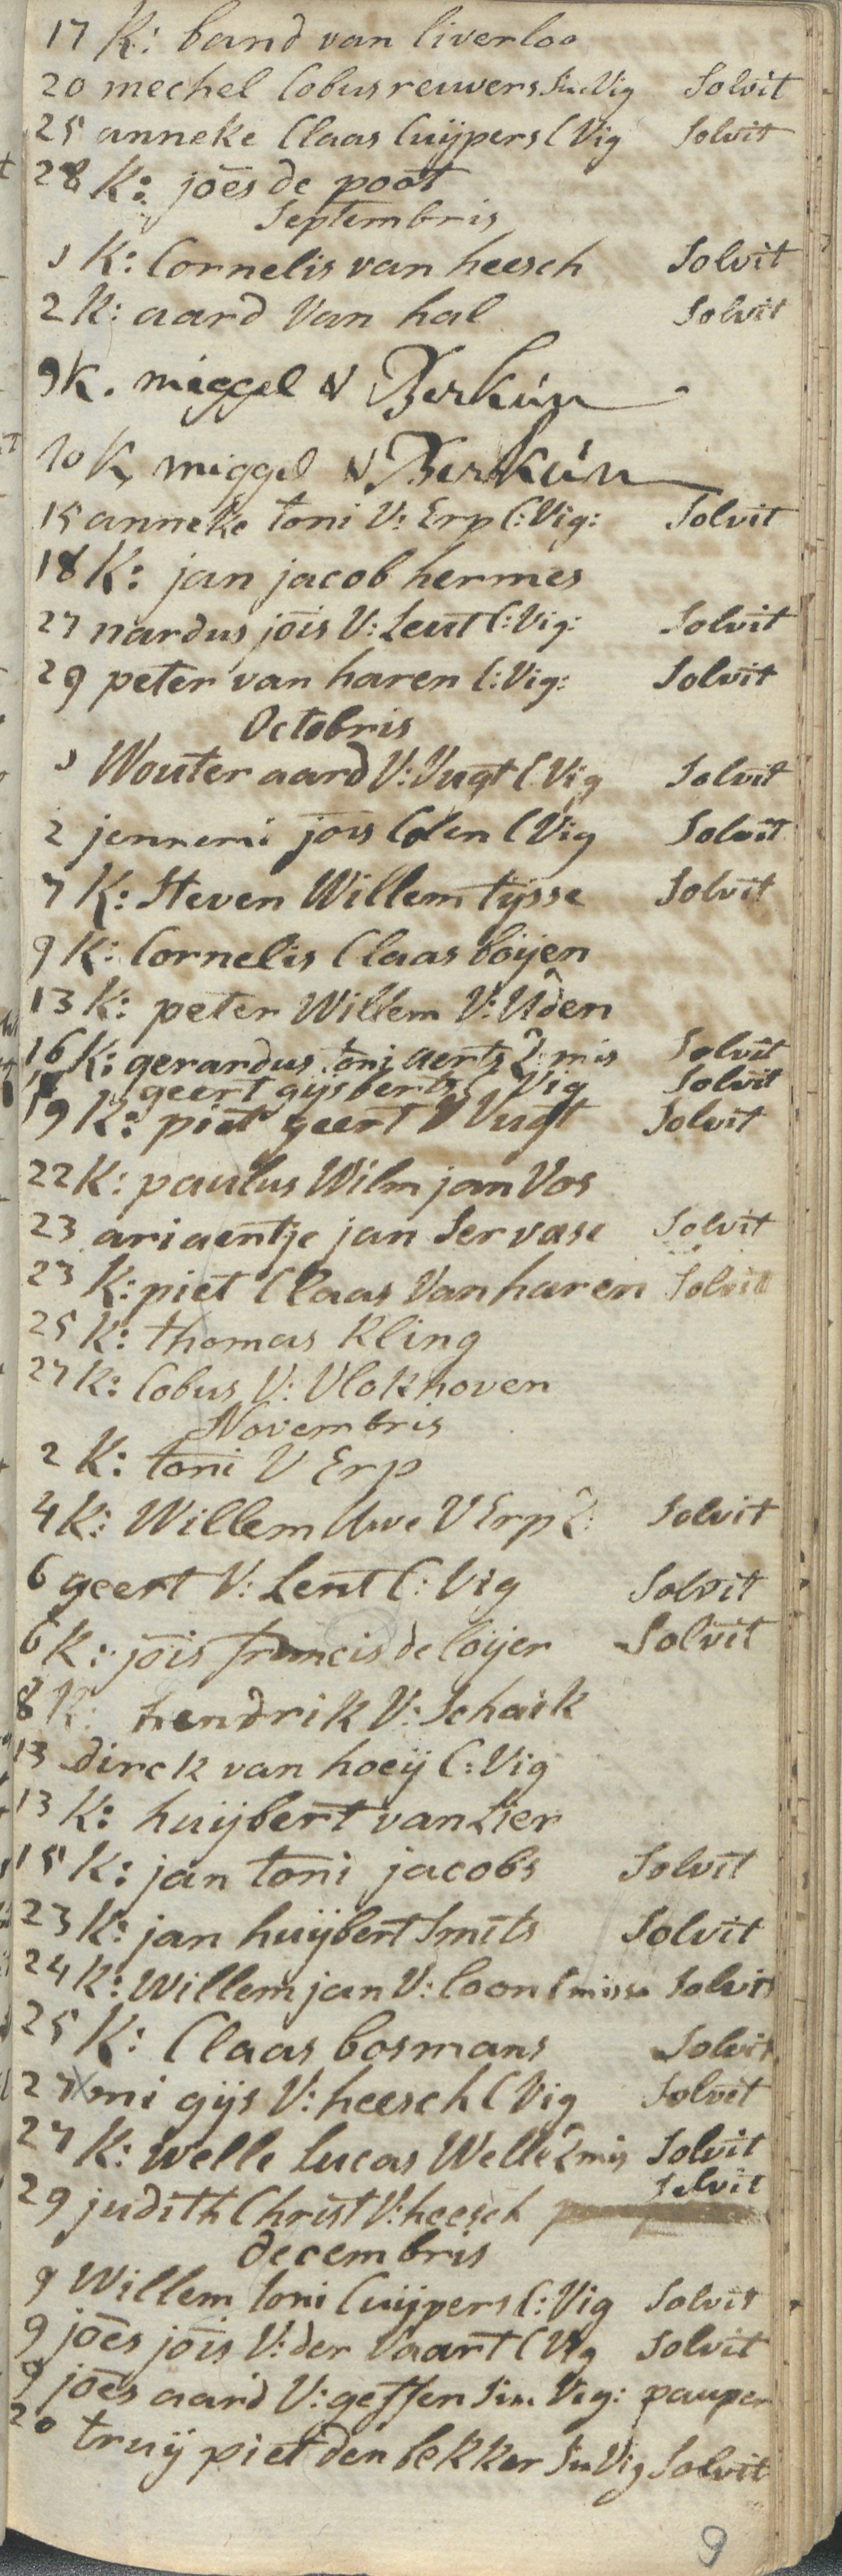 17 K: band van liverloo
20 mechel Cobus reuvers Sin Vig Solvit
25 anneke Claas Cuÿpers C Vig Solvit
28 K: jōes de poot
Septembris
1 K: Cornelis van heesch Solvit
2 K: aard Van hal Solvit
9 K. miggel V Berkún
10 K miggel V Berkún
15 anneke toni V: Erp C: Vig: Solvit
18 K: jan jacob hermes
27 nardus jōis V: Lent C: Vig: Solvit
29 peter van haren C: Vig: Solvit
Octobris
1 Wouter aard V: Vugt C Vig Solvit
2 jennemi jois Colen C Vig Solvit
7 K: Steven Willem tijsse Solvit
9 K: Cornelis Claas boijen
13 K: peter Willem V: Uden
16 K: gerardus toni aerts 2 mis Solvit
geert gijsberts C Vig Solvit
19 K: piet geert V Vugt Solvit
22 K: paulus Wilm jan Vos
23 ariaentje jan Servase Solvit
23 K: piet Claas Van haren Solvit
25 K: thomas Kling
27 K: Cobus V: Vlokhoven
Novembris
2 K: toni V Erp
4 K: Willem Uwe V Erp 2: Solvit
6 geert V: Lent C: Vig Solvit
6 K: jōis francis de Coijer Solvit
8 K: hendrik V: Schaik
13 dirck van hoeij C: Vig
13 K: huijbert van Lier
15 K: jan toni jacobs Solvit
23 K: jan huijbert Smits Solvit
24 K: Willem jan V: loon missa Solvit
25 K: Claas bosmans Solvit
27 mi gijs V: heesch C Vig Solvit
27 K: welle lucas Welle 2 mis Solvit
29 judith Christ V: heesch Solvit
decembris
9 Willem toni Cuijpers C: Vig Solvit
9 jōes jōis V: der Vaart C Vig Solvit
9 jōes aard V: geffen Sin Vig: pauper
20 truij piet den bekker Sin Vig Solvit
9